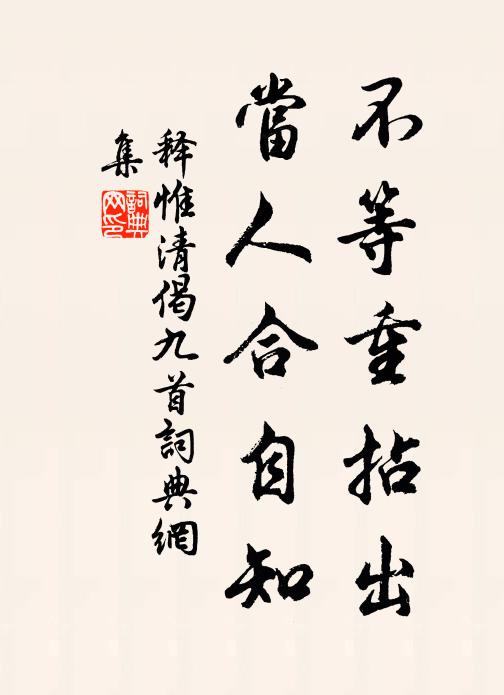 不等重拈出
當人合自知
释惟清偈九首詞典網
集
詞典
网印